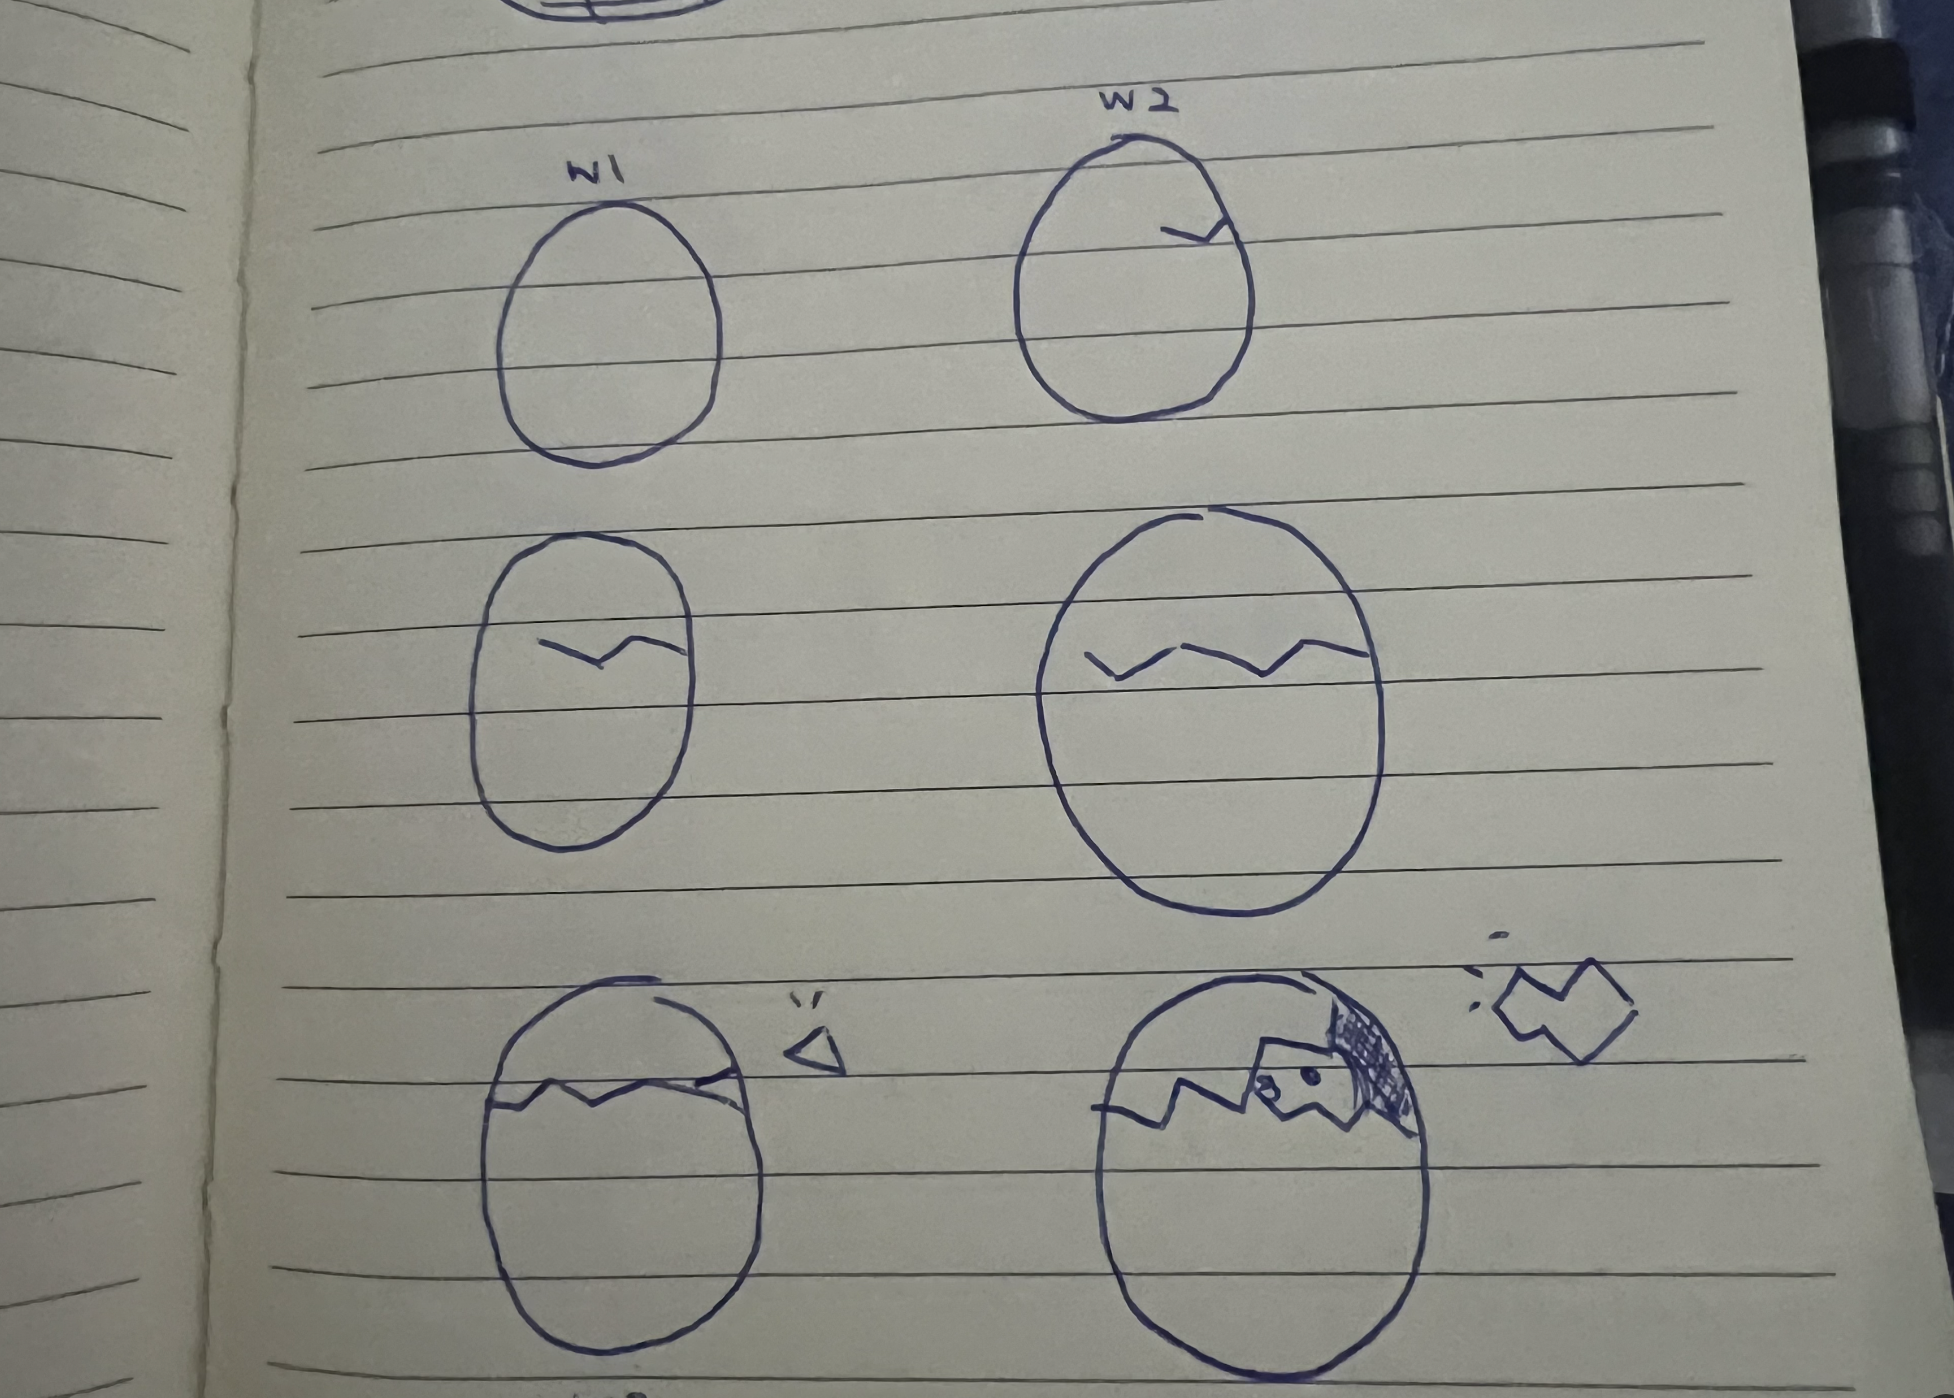 W1
W2